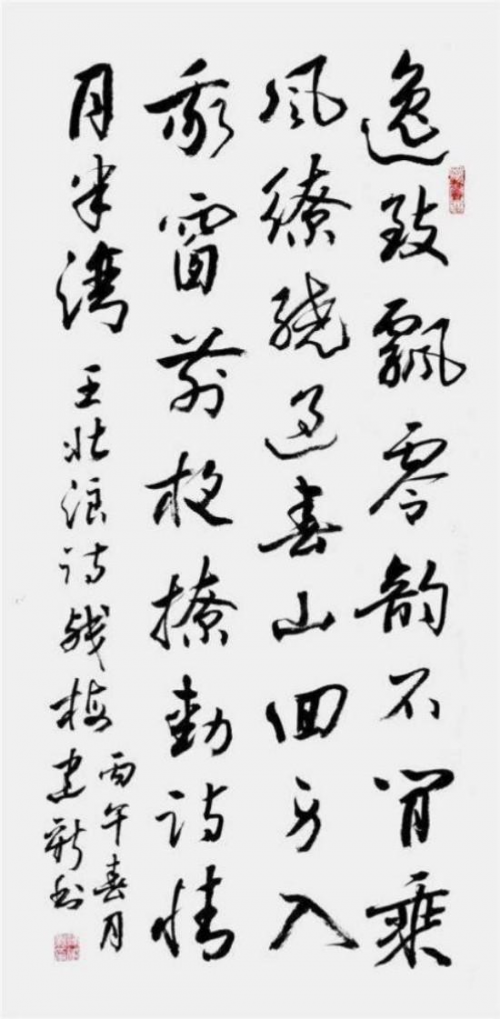 逸致飘零韵不闲乘
风缭绕过春山回身入
我窗前枝撩动诗情
月半湾 王壮浪诗残梅
丙午春月
建新书